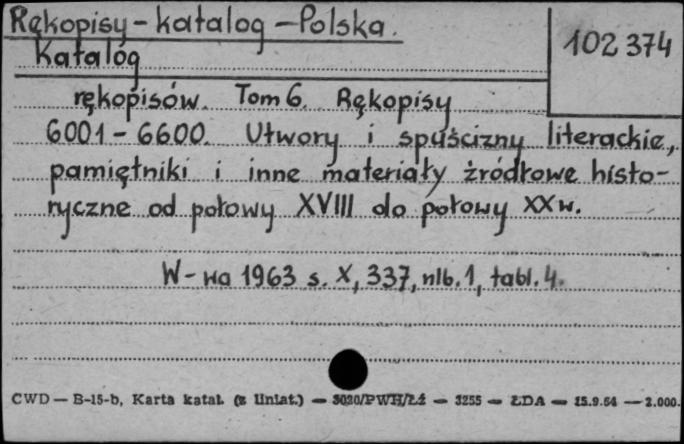 Rękopisy - katalog - Polska.
102 374
Katalog
rękopisów. Tom 6. Rękopisy
6001 - 6600. Utwory i spuścizny literackie,
pamiętniki i inne materiały źródłowe histo-
ryczne od połowy XVIII do połowy XX w.
W-wa 1963 s. X, 337, nlb. 1, tabl. 4.
CWD — B-15-b, Karta katal. (z liniat.) — 3020/PWH/Łź — 3255 — ŁDA — 15.9.54 — 2.000.